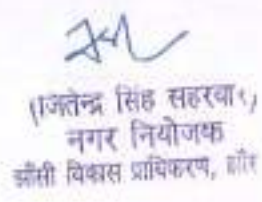 (जितेन्द्र सिंह सहरवार)
नगर नियोजक
झाँसी विकास प्राधिकरण,